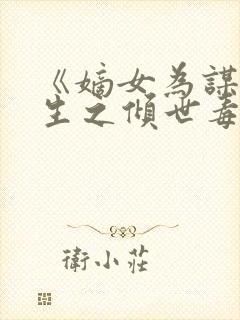 《嫡女為謀
生之傾世毒
衛小莊